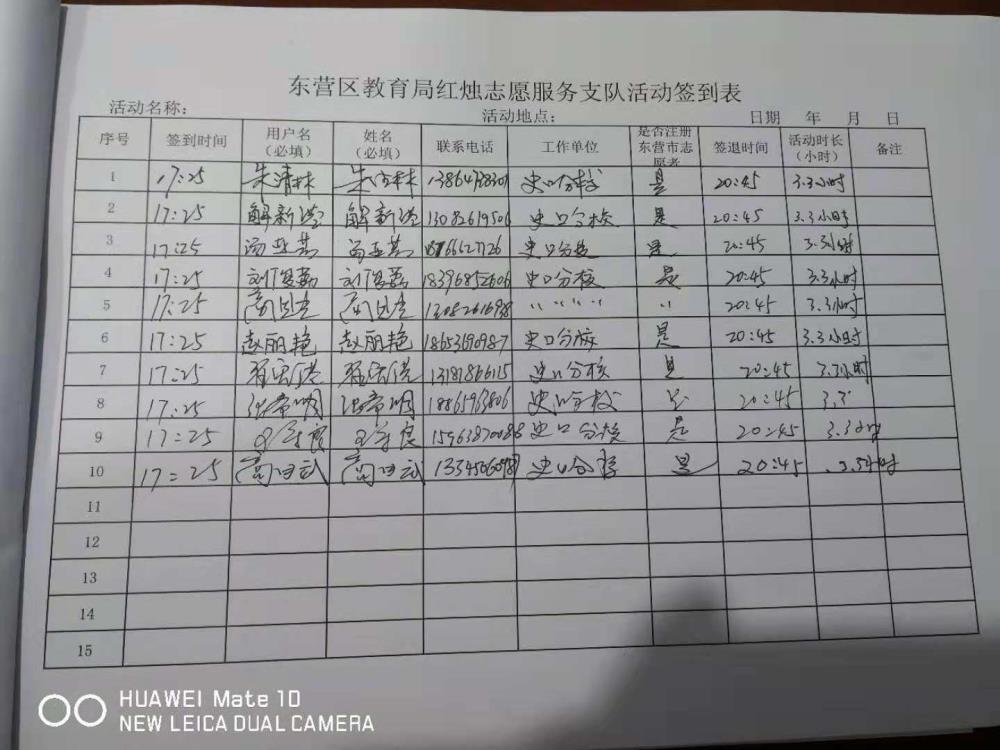 东营区教育局红烛志愿服务支队活动签到表
活动名称： 活动地点： 日期 年 月 日
序号 签到时间 用户名（必填） 姓名（必填） 联系电话 工作单位 是否注册东营市志愿者 签退时间 活动时长（小时） 备注
1 17:25 朱清林 史口分校 是 20:45 3.3小时
2 17:25 解新港 解新港 13082619506 史口分校 是 20:45 3.3小时
3 17:25 史口分校 是 20:45 3.3小时
4 17:25 18396852606 史口分校 是 20:45 3.3小时
5 17:25 〃 〃 〃 〃 〃 20:45 3.3小时
6 17:25 赵丽艳 赵丽艳 18653690987 史口分校 是 20:45 3.3小时
7 17:25 13181866115 史口分校 是 20:45 3.3小时
8 17:25 张希明 张希明 史口分校 是 20:45 3.3
9 17:25 史口分校 是 20:45 3.3小时
10 17:25 史口分校 是 20:45
11
12
13
14
15
HUAWEI Mate 10
NEW LEICA DUAL CAMERA